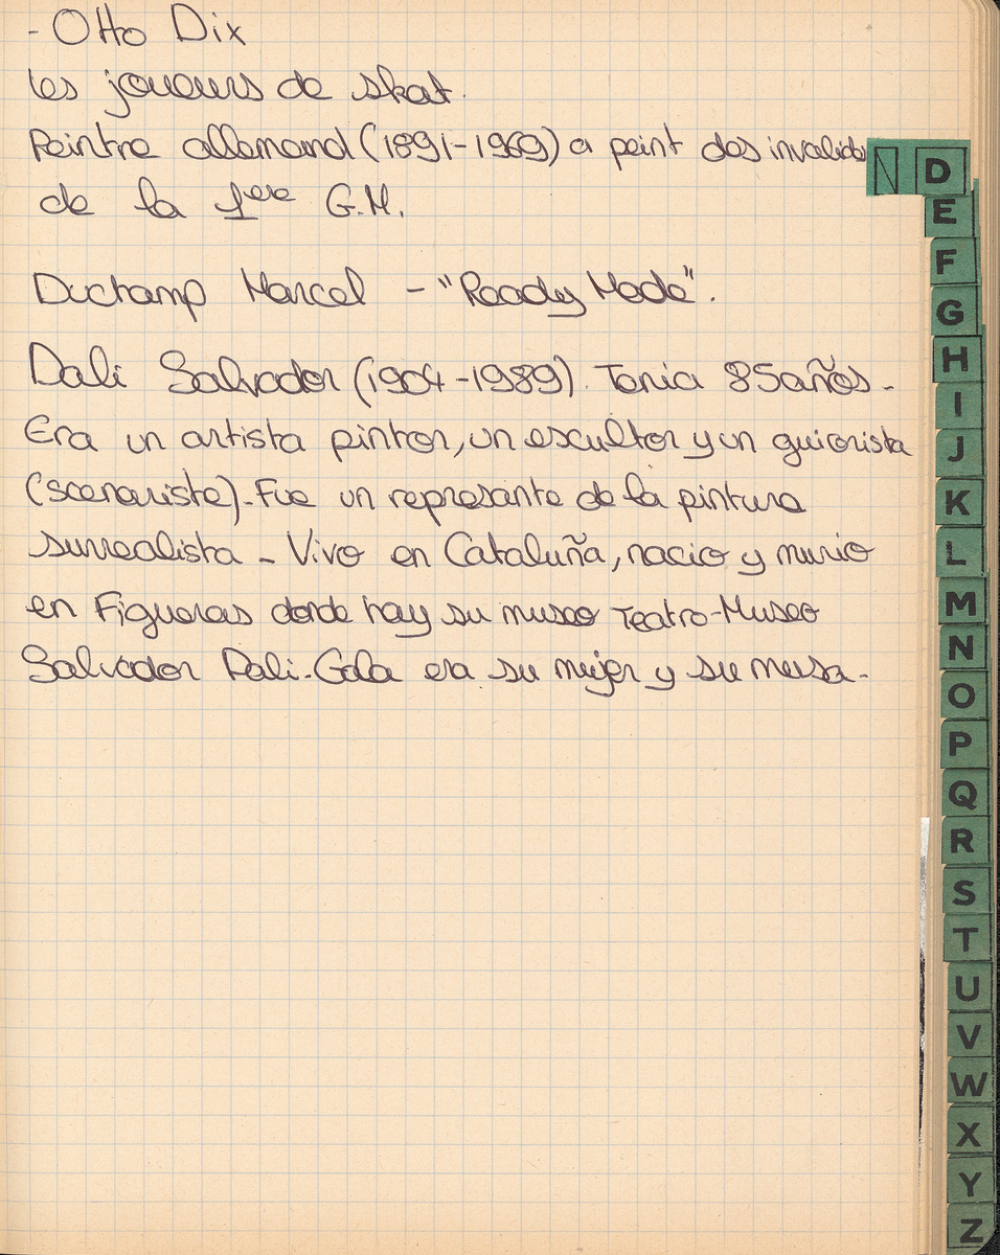 - Otto Dix
Les joueurs de skat.
Peintre allemand (1891-1969) a peint des invalides
de la 1ere G.M.
Duchamp Marcel - "Ready Made".
Dali Salvador (1904-1989). Tenia 85 años.
Era un artista pintor, un escultor y un guionista
(scenariste). Fue un represante de la pintura
surrealista - Vivo en Cataluña, nacio y murio
en Figueras donde hay su museo Teatro-Museo
Salvador Dali. Gala era su mujer y su musa.
D
E
F
G
H
I
J
K
L
M
N
O
P
Q
R
S
T
U
V
W
X
Y
Z